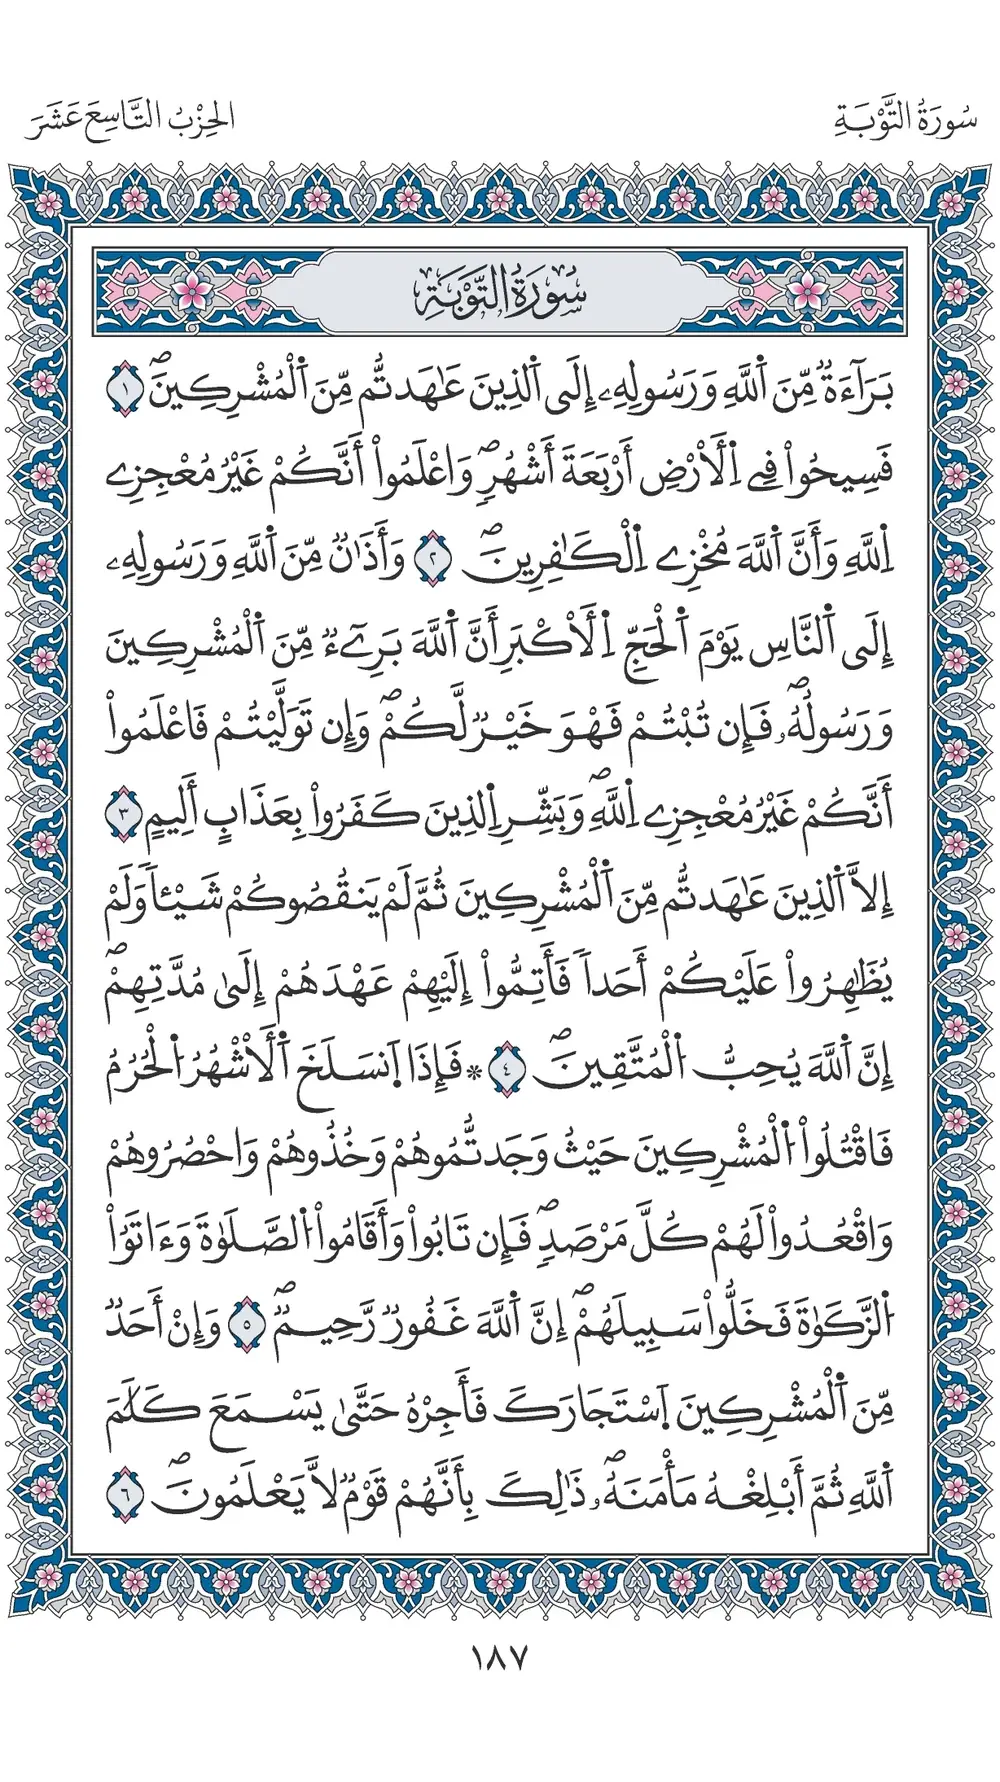 سُورَةُ التَّوْبَةِ
الحِزْبُ التَّاسِعَ عَشَرَ
سُورَةُ التَّوْبَةِ
بَرَآءَةٞ مِّنَ اَ۬للَّهِ وَرَسُولِهِۦٓ إِلَى اَ۬لذِينَ عَٰهَدتُّم مِّنَ اَ۬لْمُشْرِكِينَۖ ١
فَسِيحُواْ فِے اِ۬لْأَرْضِ أَرْبَعَةَ أَشْهُرٖۖ وَاعْلَمُواْ أَنَّكُمْ غَيْرُ مُعْجِزِے
اِ۬للَّهِ وَأَنَّ اَ۬للَّهَ مُخْزِے اِ۬لْكَٰفِرِينَۖ ٢ وَأَذَٰنٞ مِّنَ اَ۬للَّهِ وَرَسُولِهِۦٓ
إِلَى اَ۬لنَّاسِ يَوْمَ اَ۬لْحَجِّ اِ۬لْأَكْبَرِ أَنَّ اَ۬للَّهَ بَرِےٓءٞ مِّنَ اَ۬لْمُشْرِكِينَ
وَرَسُولُهُۥۖ فَإِن تُبْتُمْ فَهْوَ خَيْرٞ لَّكُمْۖ وَإِن تَوَلَّيْتُمْ فَاعْلَمُواْ
أَنَّكُمْ غَيْرُ مُعْجِزِے اِ۬للَّهِۖ وَبَشِّرِ اِ۬لذِينَ كَفَرُواْ بِعَذَابٍ أَلِيمٍ ٣
إِلَّا اَ۬لذِينَ عَٰهَدتُّم مِّنَ اَ۬لْمُشْرِكِينَ ثُمَّ لَمْ يَنقُصُوكُمْ شَيْـٔاٗ وَلَمْ
يُظَٰهِرُواْ عَلَيْكُمْ أَحَداٗ فَأَتِمُّواْ إِلَيْهِمْ عَهْدَهُمْ إِلَىٰ مُدَّتِهِمْۖ
إِنَّ اَ۬للَّهَ يُحِبُّ اُ۬لْمُتَّقِينَۖ ٤ * فَإِذَا اَ۪نسَلَخَ اَ۬لْأَشْهُرُ اُ۬لْحُرُمُ
فَاقْتُلُواْ اُ۬لْمُشْرِكِينَ حَيْثُ وَجَدتُّمُوهُمْ وَخُذُوهُمْ وَاحْصُرُوهُمْ
وَاقْعُدُواْ لَهُمْ كُلَّ مَرْصَدٖۖ فَإِن تَابُواْ وَأَقَامُواْ اُ۬لصَّلَوٰةَ وَءَاتَوُاْ
اُ۬لزَّكَوٰةَ فَخَلُّواْ سَبِيلَهُمْۖ إِنَّ اَ۬للَّهَ غَفُورٞ رَّحِيمٞۖ ٥ وَإِنْ أَحَدٞ
مِّنَ اَ۬لْمُشْرِكِينَ اَ۪سْتَجَارَكَ فَأَجِرْهُ حَتَّىٰ يَسْمَعَ كَلَٰمَ
اَ۬للَّهِ ثُمَّ أَبْلِغْهُ مَأْمَنَهُۥۖ ذَٰلِكَ بِأَنَّهُمْ قَوْمٞ لَّا يَعْلَمُونَۖ ٦
١٨٧